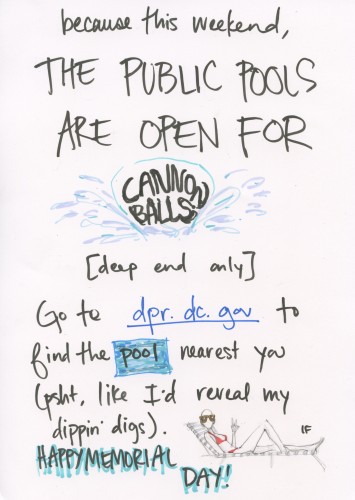 because this weekend,
THE PUBLIC POOLS
ARE OPEN FOR
CANNON
BALLS
[deep end only]
Go to dpr.dc.gov to
find the pool nearest you
(psht, like I'd reveal my
dippin' digs).
IF
HAPPY MEMORIAL
DAY!